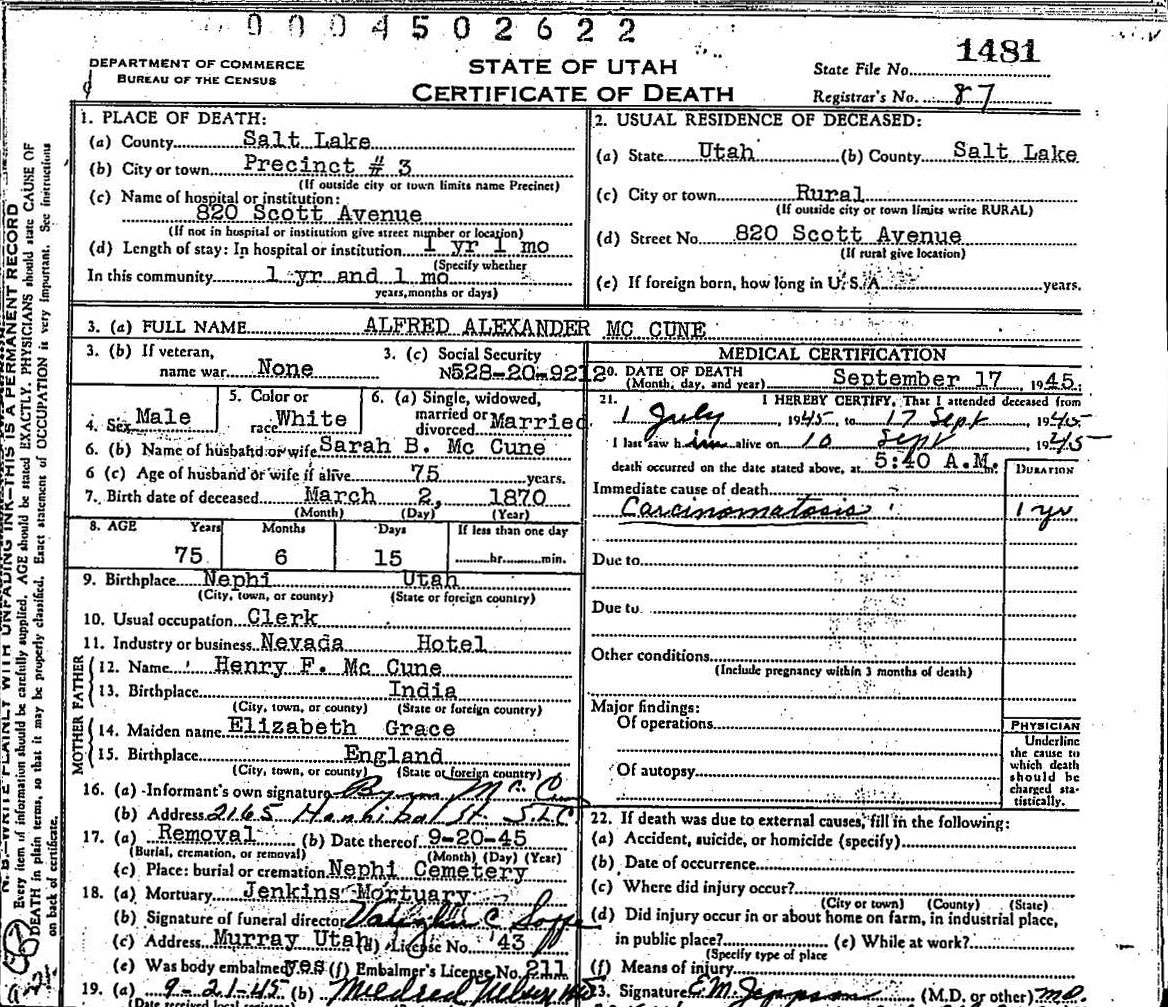 0004502622
DEPARTMENT OF COMMERCE
BUREAU OF THE CENSUS
STATE OF UTAH
CERTIFICATE OF DEATH
State File No. 1481
Registrar's No. 87
1. PLACE OF DEATH:
(a) County Salt Lake
(b) City or town Precinct # 3
(If outside city or town limits name Precinct)
(c) Name of hospital or institution:
820 Scott Avenue
(If not in hospital or institution give street number or location)
(d) Length of stay: In hospital or institution 1 yr 1 mo
(Specify whether
In this community 1 yr and 1 mo
years, months or days)
2. USUAL RESIDENCE OF DECEASED:
(a) State Utah (b) County Salt Lake
(c) City or town Rural
(If outside city or town limits write RURAL)
(d) Street No. 820 Scott Avenue
(If rural give location)
(e) If foreign born, how long in U.S.A. years.
3. (a) FULL NAME ALFRED ALEXANDER MC CUNE
3. (b) If veteran,
name war None
3. (c) Social Security
No 528-20-9212
4. Sex Male
5. Color or
race White
6. (a) Single, widowed,
married or
divorced Married
6. (b) Name of husband or wife Sarah B. Mc Cune
6 (c) Age of husband or wife if alive 75 years.
7. Birth date of deceased March 2, 1870
(Month) (Day) (Year)
8. AGE Years Months Days If less than one day
75 6 15 hr. min.
9. Birthplace Nephi Utah
(City, town, or county) (State or foreign country)
10. Usual occupation Clerk
11. Industry or business Nevada Hotel
FATHER
12. Name Henry F. Mc Cune
13. Birthplace India
(City, town, or county) (State or foreign country)
MOTHER
14. Maiden name Elizabeth Grace
15. Birthplace England
(City, town, or county) (State or foreign country)
16. (a) Informant's own signature Mc Cune
(b) Address 2165 Hannibal St. S.L.C
17. (a) Removal (b) Date thereof 9-20-45
(Burial, cremation, or removal) (Month) (Day) (Year)
(c) Place: burial or cremation Nephi Cemetery
18. (a) Mortuary Jenkins Mortuary
(b) Signature of funeral director Vaughn C
(c) Address Murray Utah (d) License No. 43
(e) Was body embalmed yes (f) Embalmer's License No. 211
19. (a) 9-21-45 (b) Mildred
(Date received local
MEDICAL CERTIFICATION
20. DATE OF DEATH
(Month, day, and year) September 17 1945
21. I HEREBY CERTIFY, That I attended deceased from
1 July, 1945, to 17 Sept, 1945
I last saw h im alive on 10 Sept, 1945
death occurred on the date stated above, at 5:40 A.M. m.
DURATION
Immediate cause of death
Carcinomatosis 1 yr
Due to
Due to
Other conditions
(Include pregnancy within 3 months of death)
Major findings:
Of operations
Of autopsy
PHYSICIAN
Underline
the cause to
which death
should be
charged sta-
tistically.
22. If death was due to external causes, fill in the following:
(a) Accident, suicide, or homicide (specify)
(b) Date of occurrence
(c) Where did injury occur?
(City or town) (County) (State)
(d) Did injury occur in or about home on farm, in industrial place,
in public place? (e) While at work?
(Specify type of place
(f) Means of injury
23. Signature E.M. (M.D. or other) MD
N. B.—WRITE PLAINLY WITH UNFADING INK—THIS IS A PERMANENT RECORD
Every item of information should be carefully supplied. AGE should be stated EXACTLY. PHYSICIANS should state CAUSE OF
DEATH in plain terms, so that it may be properly classified. Exact statement of OCCUPATION is very important. See instructions
on back of certificate.